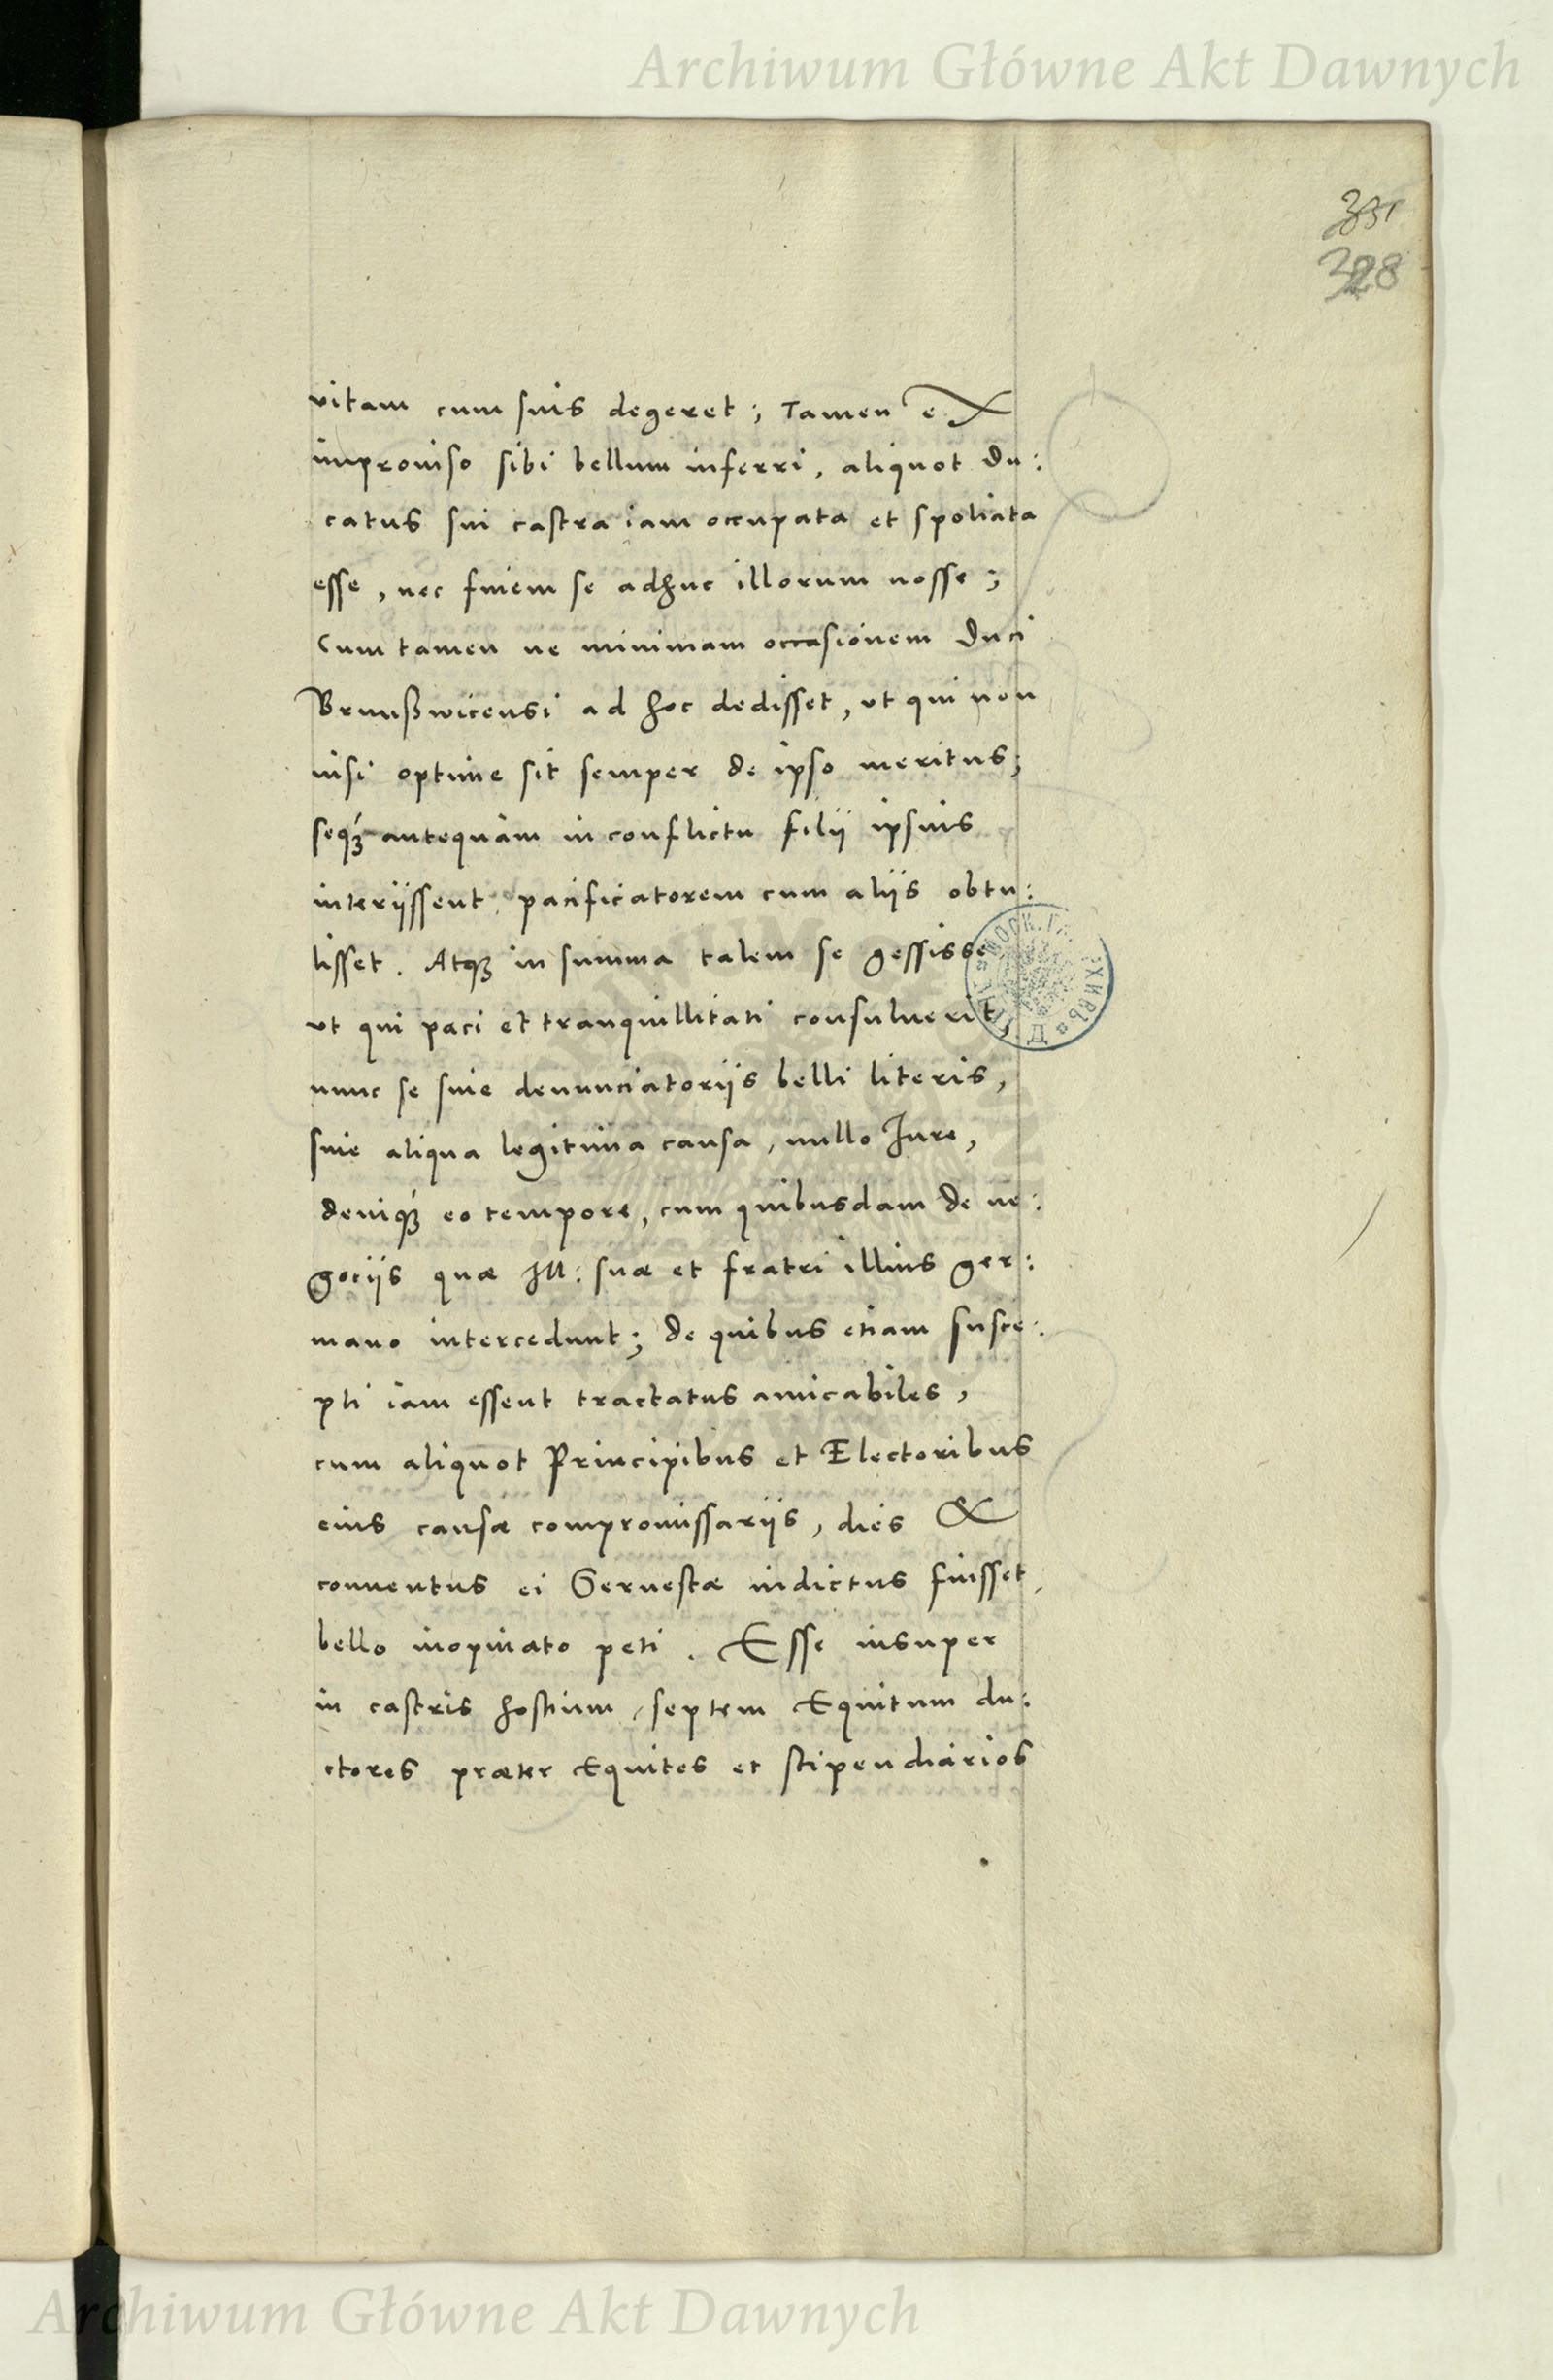 Archiwum Główne Akt Dawnych
331
328
vitam cum suis degeret; Tamen ex
improuiso sibi bellum inferri, aliquot du:
catus sui castra iam occupata et spoliata
esse, nec finem se adhuc illorum nosse;
Cum tamen ne minimam occasionem Duci
Brunßwicensi ad hoc dedisset, vt qui non
nisi optime sit semper de ipso meritus;
seqꝫ antequàm in conflictu filij ipsius
interijssent, pacificatorem cum alijs obtu:
lisset. Atqꝫ in summa talem se gessisse
vt qui paci et tranquillitati consuluerit,
nunc se sine denunciatorijs belli literis,
sine aliqua legitima causa, nullo Jure,
deniqꝫ eo tempore, cum quibusdam de ne:
gocijs quæ Ill: suæ et fratri illius ger:
mano intercedunt; de quibus etiam susce:
pti iam essent tractatus amicabiles,
cum aliquot Principibus et Electoribus
eius causæ compromissarijs, dies &
conuentus ei Seruestæ indictus fuisset,
bello inopinato peti. Esse insuper
in castris hostium, septem Equitum du:
ctores præter Equites et stipendiarios
Archiwum Główne Akt Dawnych